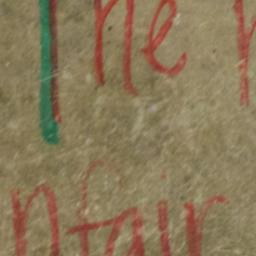 The
nfair